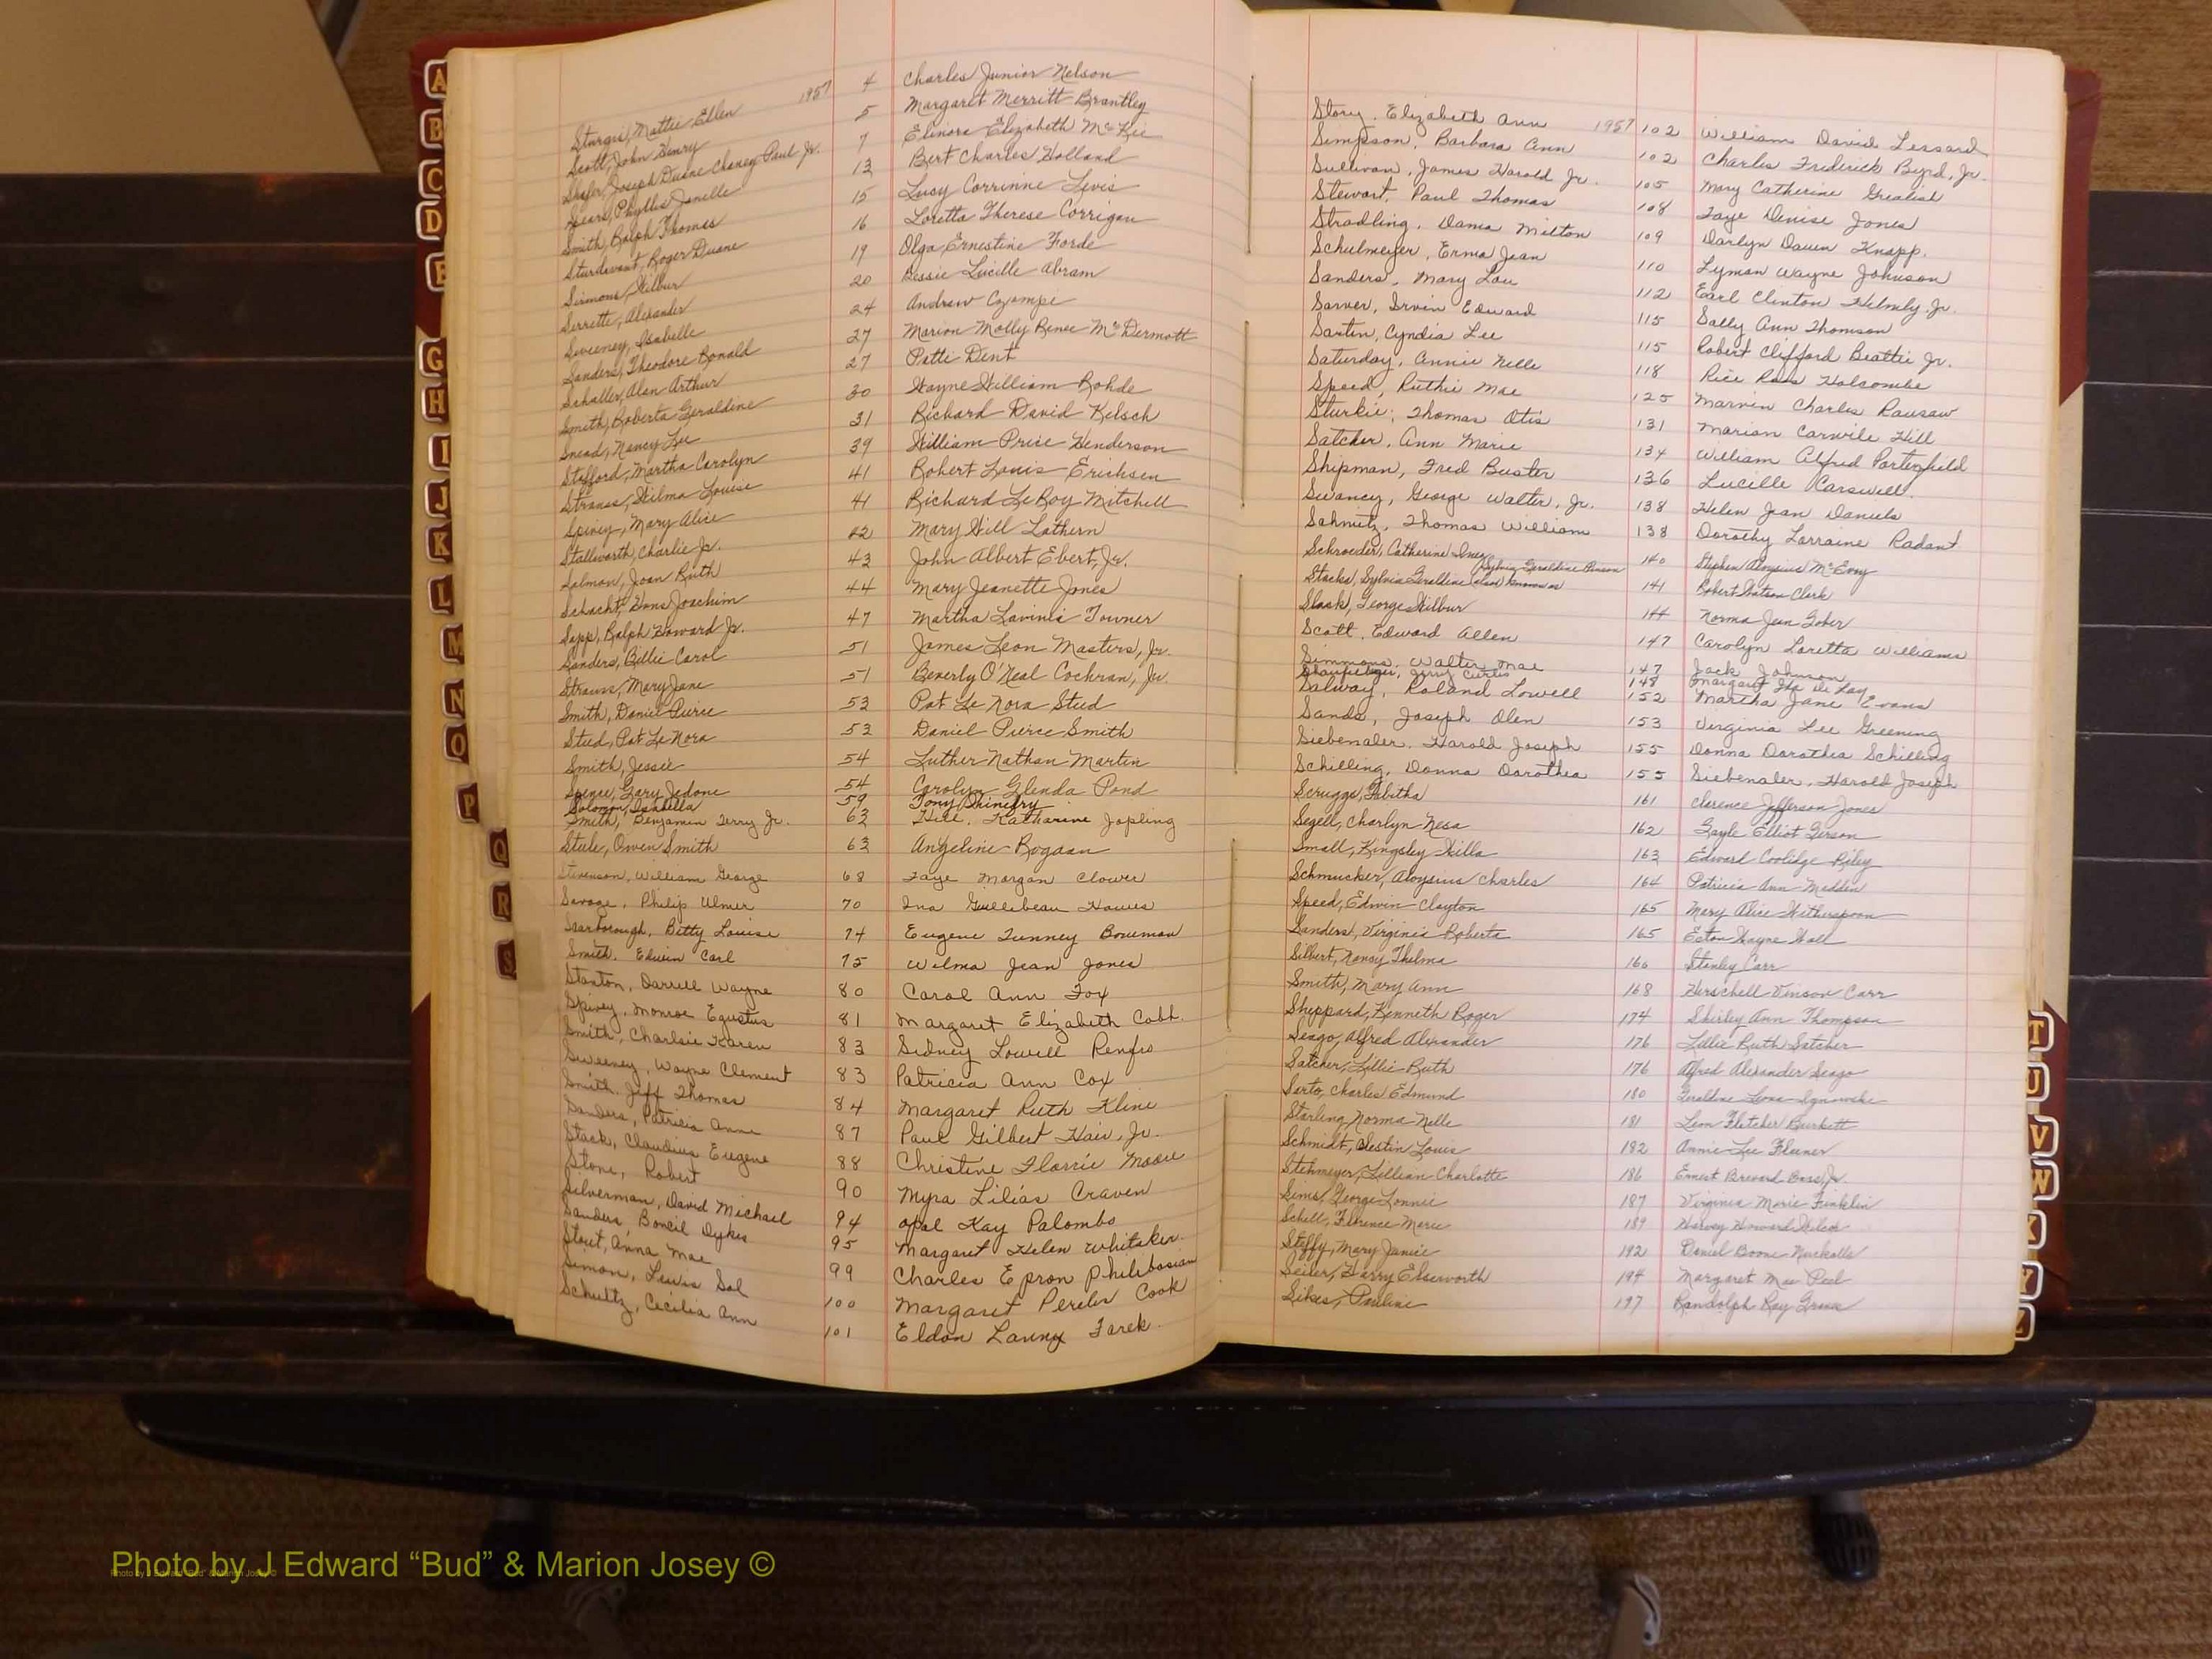 Sturgis, Mattie Ellen 1957 4 Charles Junior Nelson
Scott, John Henry 5 Margaret Merritt Brantley
Shafer, Joseph Duane Chaney Paul Jr. 7 Elinora Elizabeth McKie
Sears, Phyllis Janelle 13 Bert Charles Holland
Smith, Ralph Thomas 15 Lucy Corrinne Livis
Sturdevant, Roger Duane 16 Loretta Therese Corrigan
Simons, Wilbur 19 Olga Ernestine Forde
Serrette, Alexander 20 Bessie Lucille Abram
Sweeney, Isabelle 24 Andrew Czompi
Sanders, Theodore Ronald 27 Marion Molly Renee McDermott
Schaller, Alan Arthur 27 Patti Dent
Smith, Roberta Geraldine 30 Wayne William Rohde
Snead, Nancy Lee 31 Richard David Kelsch
Stafford, Martha Carolyn 39 William Price Henderson
Strauss, Wilma Louise 41 Robert Louis Erichsen
Spivey, Mary Alice 41 Richard LeRoy Mitchell
Stallworth, Charlie Jr. 42 Mary Will Lathern
Salmon, Joan Ruth 43 John Albert Ebert, Jr.
Schacht, Hans Joachim 44 Mary Jeanette Jones
Sapp, Ralph Howard Jr. 47 Martha Lavinia Towner
Sanders, Billie Carol 51 James Leon Masters, Jr.
Strauss, Mary Jane 51 Beverly O'Neal Cochran, Jr.
Smith, Daniel Pierce 53 Pat Le Nora Stud
Stud, Pat Le Nora 53 Daniel Pierce Smith
Smith, Jessie 54 Luther Nathan Martin
Spence, Gary Jedone 54 Carolyn Glenda Pond
Solomon, Isabella 59 Tony
Smith, Benjamin Terry Jr. 63 Hill, Katharine Jopling
Steele, Owen Smith 63 Angeline Rogaan
Stevenson, William George 68 Faye Morgan Clower
Savage, Philip Ulmer 70 Ina Guillebeau Hawes
Scarborough, Betty Louise 74 Eugene Tunney Bowman
Smith, Edwin Carl 75 Wilma Jean Jones
Stanton, Darrell Wayne 80 Carol Ann Fox
Spivey, Monroe Egustus 81 Margaret Elizabeth Cobb.
Smith, Charlsie Karen 83 Sidney Lowell Renfro
Sweeney, Wayne Clement 83 Patricia Ann Cox
Smith, Jeff Thomas 84 Margaret Ruth Kline
Sanders, Patricia Anne 87 Paul Gilbert Hair, Jr.
Stack, Claudius Eugene 88 Christine Florrie Moore
Stone, Robert 90 Myra Lilias Craven
Silverman, David Michael 94 Opal Kay Palombo
Sanders, Boncil Dykes 95 Margaret Helen Whitaker
Stout, Anna Mae 99 Charles Epron Philibosian
Simon, Lewis Sol 100 Margaret Pereler Cook
Schultz, Cecilia Ann 101 Eldon Lanny Farek
Story, Elizabeth Ann 1957 102 William David Lessard
Simpson, Barbara Ann 102 Charles Frederick Byrd, Jr.
Sullivan, James Harold Jr. 105 Mary Catherine Greatist
Stewart, Paul Thomas 108 Faye Denise Jones
Stradling, Dama Milton 109 Darlyn Dawn Knapp
Schulmeyer, Erma Jean 110 Lyman Wayne Johnson
Sanders, Mary Lou 112 Earl Clinton Helmly, Jr.
Sarver, Irvin Edward 115 Sally Ann Thomson
Sartin, Cyndia Lee 115 Robert Clifford Beattie Jr.
Saturday, Annie Nelle 118 Rice Ross Holcombe
Speed, Ruthie Mae 125 Marvin Charles Rausaw
Sturkie, Thomas Otis 131 Marian Carwile Hill
Satcher, Ann Marie 134 William Alfred Portenfield
Shipman, Fred Buster 136 Lucille Carswell
Swancy, George Walter, Jr. 138 Helen Jean Daniels
Schmitz, Thomas William 138 Dorothy Lorraine Radant
Schroeder, Catherine Inez 140 Stephen Aloysius McEvoy
Stacks, Sylvia Geraldine also known as Sylvia Geraldine Benson 141 Robert Watson Clerk
Slack, George Wilbur 144 Norma Jean Gober
Scott, Edward Allen 147 Carolyn Loretta Williams
Simmons, Walter Mae 147 Jack Johnson
Jerry Curtis 148 Margaret Ila De Lay
Salway, Roland Lowell 152 Martha Jane Evans
Sands, Joseph Olen 153 Virginia Lee Greening
Siebenaler, Harold Joseph 155 Donna Dorothea Schilling
Schilling, Donna Dorothea 155 Siebenaler, Harold Joseph
Scruggs, Tibitha 161 Clarence Jefferson Jones
Segell, Charlyn Nesa 162 Gayle Elliot Gerson
Small, Kingsley Willa 163 Edward Coolidge Riley
Schmucker, Aloysius Charles 164 Patricia Ann Madden
Speed, Edwin Clayton 165 Mary Alice Witherspoon
Sanders, Virginia Roberta 165 Eston Wayne Wall
Silbert, Nancy Thelma 166 Stanley Carr
Smith, Mary Ann 168 Herschell Vinson Carr
Sheppard, Kenneth Roger 174 Shirley Ann Thompson
Seago, Alfred Alexander 176 Lillie Ruth Satcher
Satcher, Lillie Ruth 176 Alfred Alexander Seago
Sarto, Charles Edmund 180 Geraldine Leona
Starling, Norma Nelle 181 Leon Fletcher Burkett
Schmidt, Austin Louis 182 Annie Lee
Stehmeyer, Lillian Charlotte 186 Ernest Brevard Bass, Jr.
Sims, George Lonnie 187 Virginia Marie Funklin
Schell, Florence Marie 189 Harvey Howard
Steffy, Mary Janice 192 Daniel Boone Nuckolls
Seiler, Harry Elsworth 194 Margaret Mae Peel
Sikes, Pauline 197 Randolph Ray
A
B
C
D
E
G
H
I
J
K
L
M
N
O
P
Q
R
S
T
U
V
W
X
Y
Z
Photo by J Edward “Bud” & Marion Josey ©
Photo by J Edward "Bud" & Marion Josey ©